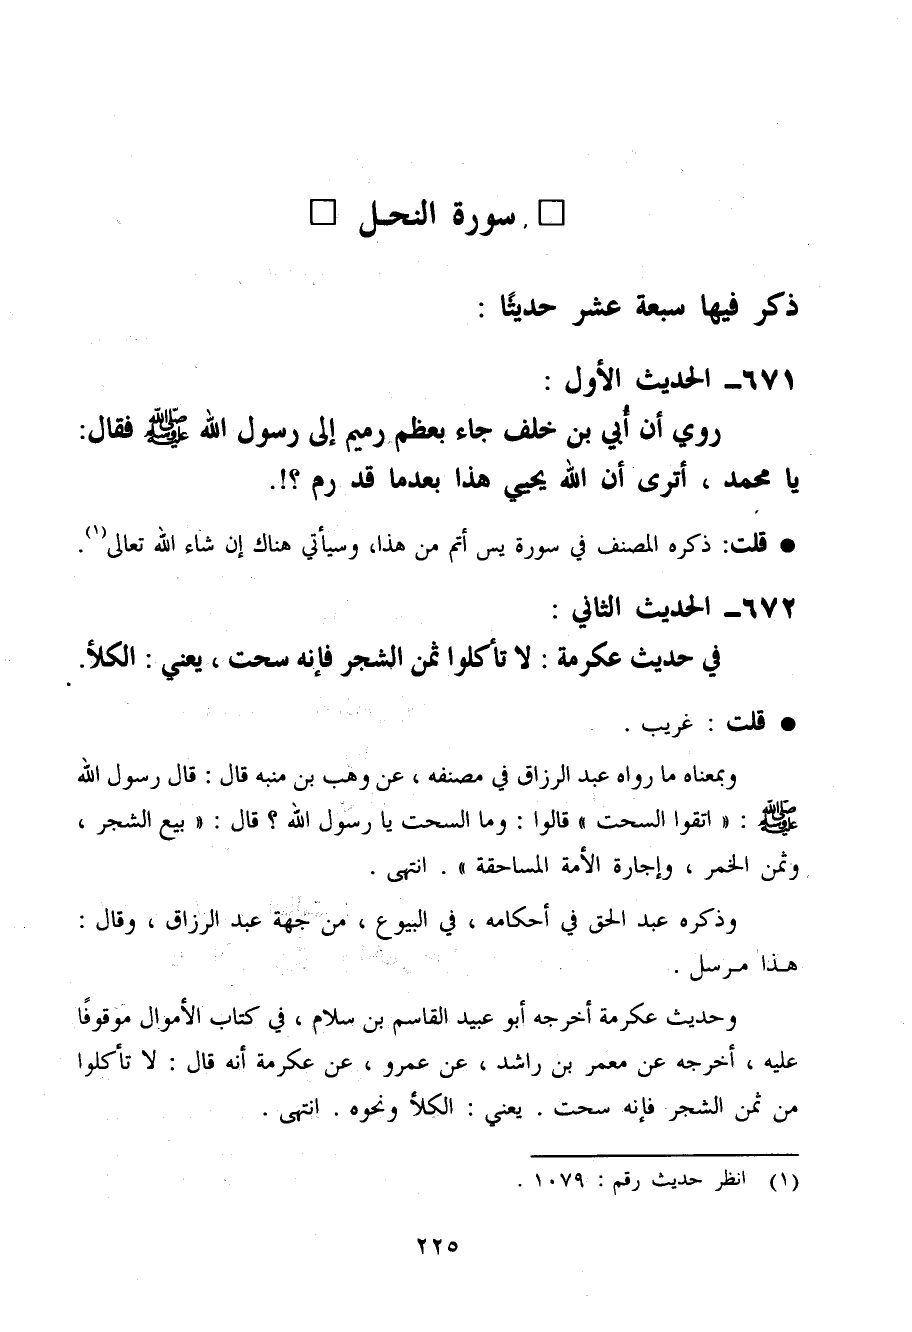 □ سورة النحـل □
ذكر فيها سبعة عشر حديثًا :
٦٧١ـ الحديث الأول :
روي أن أُبي بن خلف جاء بعظم رميم إلى رسول الله ﷺ فقال:
يا محمد ، أترى أن الله يحيي هذا بعدما قد رم ؟!.
● قلت: ذكره المصنف في سورة يس أتم من هذا، وسيأتي هناك إن شاء الله تعالى(١).
٦٧٢ـ الحديث الثاني :
في حديث عكرمة : لا تأكلوا ثمن الشجر فإنه سحت ، يعني : الكلأ.
● قلت : غريب .
وبمعناه ما رواه عبد الرزاق في مصنفه ، عن وهب بن منبه قال : قال رسول الله
ﷺ : « اتقوا السحت » قالوا : وما السحت يا رسول الله ؟ قال : « بيع الشجر ،
وثمن الخمر ، وإجارة الأمة المساحقة » . انتهى .
وذكره عبد الحق في أحكامه ، في البيوع ، من جهة عبد الرزاق ، وقال :
هـذا مـرسل .
وحديث عكرمة أخرجه أبو عبيد القاسم بن سلام ، في كتاب الأموال موقوفًا
عليه ، أخرجه عن معمر بن راشد ، عن عمرو ، عن عكرمة أنه قال : لا تأكلوا
من ثمن الشجر فإنه سحت . يعني : الكلأ ونحوه . انتهى .
(١) انظر حديث رقم : ١٠٧٩ .
٢٢٥